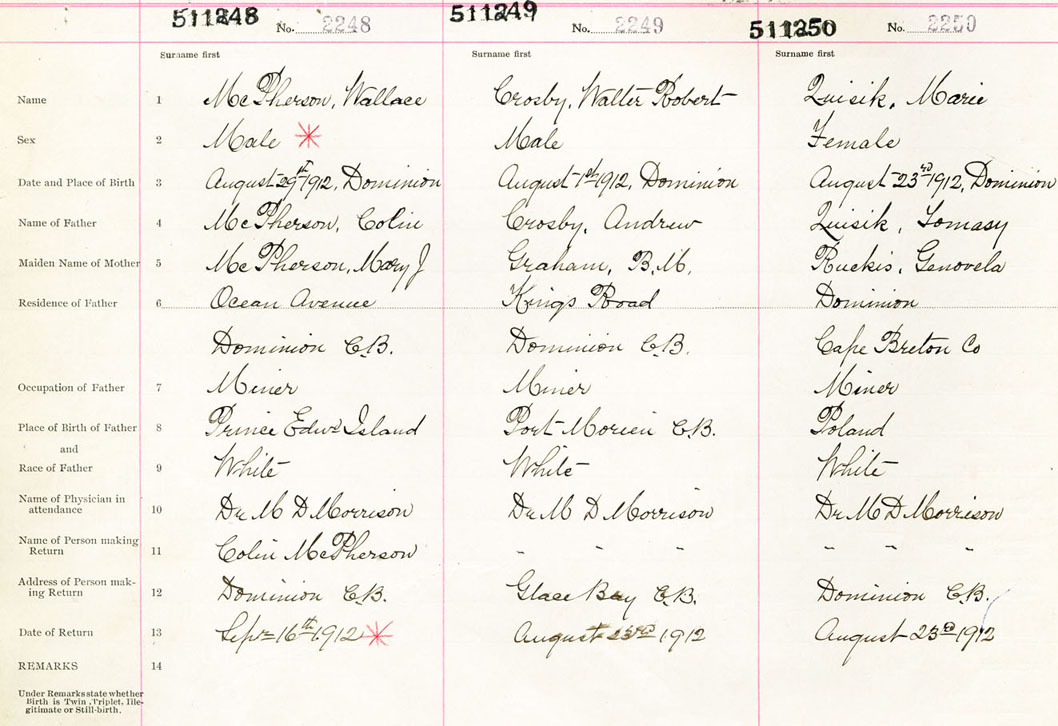 511248 No. 2248 511249 No. 2249 511250 No. 2250
Surname first Surname first Surname first
Name 1 McPherson, Wallace Crosby, Walter Robert Quisik, Marie
Sex 2 Male * Male Female
Date and Place of Birth 3 August 29th 1912, Dominion August 1st 1912, Dominion August 23rd 1912, Dominion
Name of Father 4 McPherson, Colin Crosby, Andrew Quisik, Tomasy
Maiden Name of Mother 5 McPherson, Mary J Graham, B.M. Ruckis, Genovela
Residence of Father 6 Ocean Avenue Kings Road Dominion
Dominion C.B. Dominion C.B. Cape Breton Co
Occupation of Father 7 Miner Miner Miner
Place of Birth of Father 8 Prince Edwd Island Port Morien C.B. Poland
and
Race of Father 9 White White White
Name of Physician in
attendance 10 Dr M D Morrison Dr M D Morrison Dr M D Morrison
Name of Person making
Return 11 Colin McPherson " " " " " "
Address of Person mak-
ing Return 12 Dominion C.B. Glace Bay C.B. Dominion C.B.
Date of Return 13 Sept 16th 1912 * August 23rd 1912 August 23rd 1912
REMARKS 14
Under Remarks state whether
Birth is Twin, Triplet, Ille-
gitimate or Still-birth.